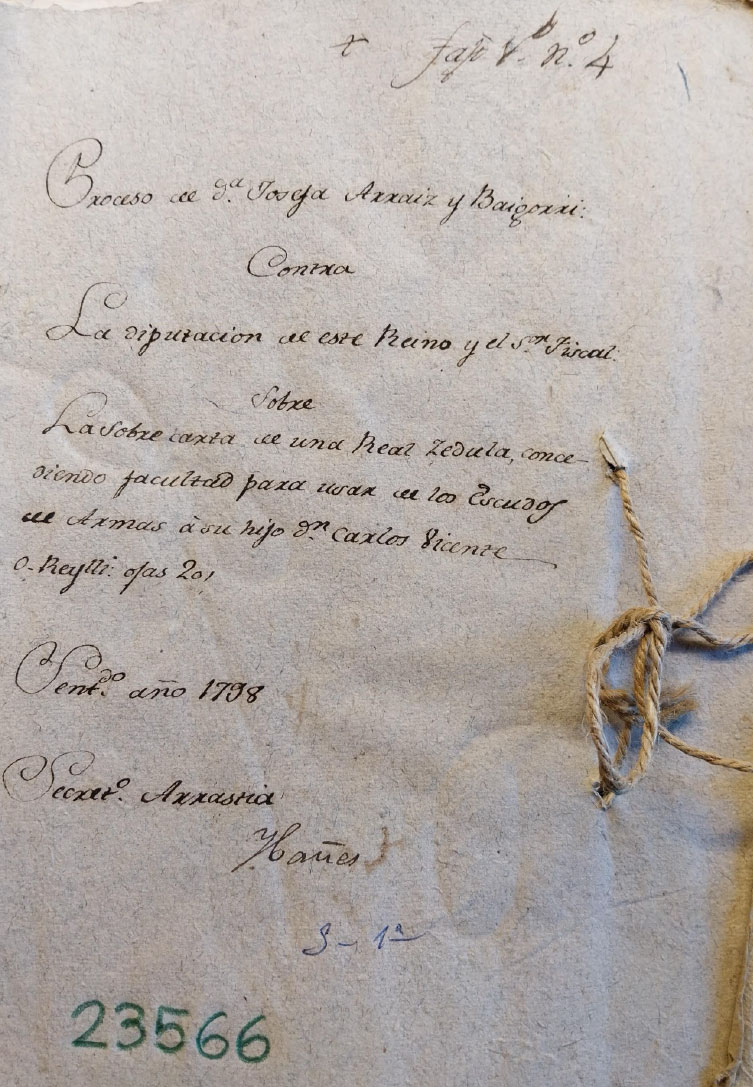 + fajo 1.º n.º 4
Proceso de d.ª Josefa Arraiz y Baigorri:
Contra
La diputacion de este Reino y el S.or Fiscal.
Sobre
La Sobre carta de una Real Zedula, conce-
diendo facultad para usar de los Escudos
de Armas à su hijo d.n Carlos Vicente
O-Reylli: ojas 20,
Sent.do año 1798
Secret.o Arrastia
Ibañes
S - 1ª
23566